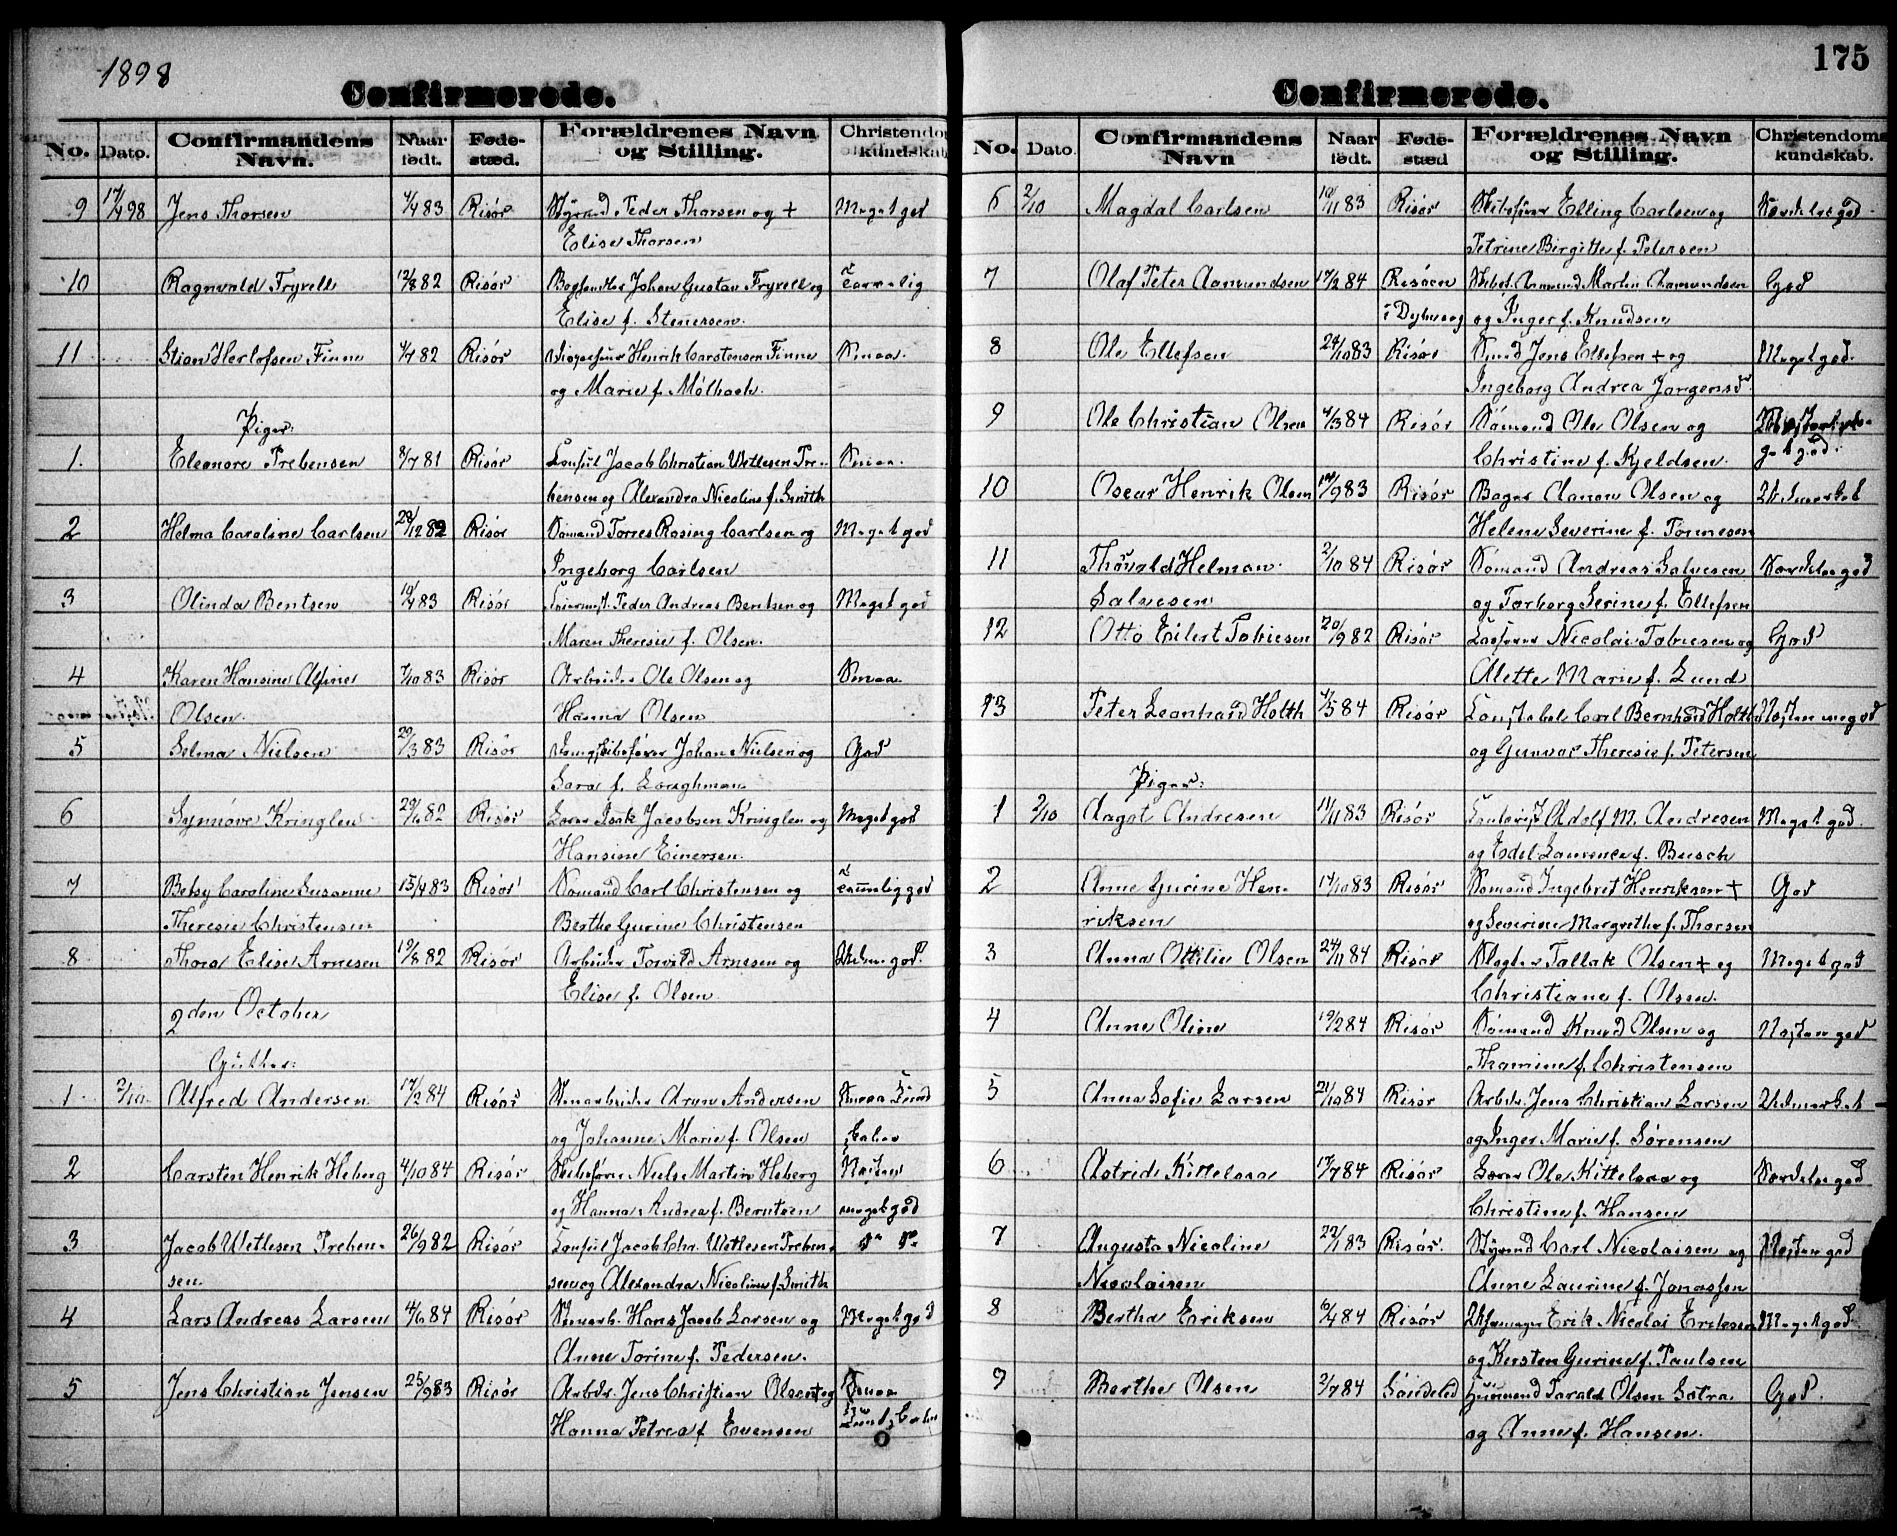 1898
Confirmerede.
No. Dato. Confirmandens Navn. Naar født. Føde-stæd. Forældrenes Navn og Stilling. Christendoms kundskab
9 17/4 98 Jens Thorsen 4/4 83 Risør Styrmd Peder Thorsen og + Meget god
Elise Thorsen
10 Ragnvald Fryvell 12/8 82 Risør Johan Gustav Fryvell og
Elise f. Stenersen.
11 Stian Herlofsen Finne 4/7 82 Risør Henrik Carstensen Finne Smaa.
og Marie f. Mølbach.
Piger:
1. Eleonore Prebensen 8/7 81 Risør Consul Jacob Christian Wetlesen Pre- Smaa.
bensen og Alexandra Nicoline f. Smith
2 Helma Caroline Carlsen 28/12 82 Risør Sømand Torres Rosing Carlsen og Meget god
Ingeborg Carlsen
3 Olinda Bentsen 10/4 83 Risør Peder Andreas Bentsen og Meget god
Maren Theresie f. Olsen.
4 Karen Hansine Alfine 7/10 83 Risør Arbeider Ole Olsen og Smaa
Olsen. Hanna Olsen
5 Selma Nielsen 29/3 83 Risør Johan Nielsen og God
Sara f. Loughman
6 Synnøve Kringlen 29/6 82 Risør Lærer Isak Jacobsen Kringlen og Meget god
Hansine Einersen.
7 Betsy Caroline Susanne 15/4 83 Risør Sømand Carl Christensen og temmelig god
Theresie Christensen Berthe Gurine Christensen
8 Thora Elise Arnesen 19/8 82 Risør Arbeider Torvild Arnesen og god.
Elise f. Olsen.
2den October
Gutter:
1. 2/10. Alfred Andersen 17/2 84 Risør Aron Andersen Smaa
og Johanne Marie f. Olsen
2 Carsten Henrik Heberg 4/10 84 Risør Skibsfører Niels Martin Heberg Næsten
og Hanna Andrea f. Berntsen meget god
3 Jacob Wetlesen Preben- 26/9 82 Risør Consul Jacob Chr. Wetlesen Preben-
sen. sen og Alexandra Nicoline f. Smith
4 Lars Andreas Larsen 4/6 84 Risør Hans Jacob Larsen og Meget god
Anne Torine f. Pedersen.
5 Jens Christian Jensen 25/9 83 Risør Arbdr. Jens Christian Olsen + og Smaa
Hanna Petrea f. Evensen
175
Confirmerede.
No. Dato. Confirmandens Navn Naar født. Føde-stæd Forældrenes Navn og Stilling. Christendoms kundskab.
6 2/10 Magdal Carlsen 10/11 83 Risør Skibsfører Elling Carlsen og Særdeles god.
Petrine Birgitte f. Petersen
7 Olaf Peter Aamundsen 17/2 84 Risøen Aamund Martin Aamundsen God
i Dybvaag og Inger f. Knudsen
8 Ole Ellefsen 24/10 83 Risør Jens Ellefsen + og Meget god.
Ingeborg Andrea Jørgensdr.
9 Ole Christian Olsen 4/3 84 Risør Sømand Ole Olsen og
Christine f. Kjeldsen. god.
10 Oscar Henrik Olsen 14/9 83 Risør Bager Aanon Olsen og Udmerket
Helene Severine f. Tønnesen
11 Thorvald Helman 2/10 84 Risør Sømand Andreas Salvesen Særdeles god
Salvesen og Torborg Serine f. Ellefsen
12 Otto Eilert Tobiesen 20/9 82 Risør Nicolai Tobiesen og God
Alette Marie f. Lund
13 Peter Leonhard Holth 4/5 84 Risør Constabel Carl Bernhard Holth Næsten meget god
og Gunvor Theresie f. Petersen
Piger:
1 2/10 Aagot Andresen 11/11 83 Risør Adolf M. Andresen Meget god.
og Edel Laurence f. Busch
2 Anne Gurine Hen- 14/10 83 Risør Sømand Ingebret Henriksen + God
riksen og Severine Margrethe f. Thorsen
3 Anna Ottilie Olsen 24/11 84 Risør Slagter Tallak Olsen + og Meget god
Christiane f. Olsen.
4 Anne Oline 19/2 84 Risør Sømand Knud Olsen og Næsten god
Thomine f. Christensen
5 Anna Sofie Larsen 21/10 84 Risør Arbdr. Jens Christian Larsen Udmerket
og Inger Marie f. Sørensen
6 Astrid Kittelsaa 17/7 84 Risør Lærer Ole Kittelsaa og Særdeles god
Christine f. Hansen
7 Augusta Nicoline 22/1 83 Risør. Styrmd Carl Nicolaisen og Næsten god
Nicolaisen Anne Laurine f. Jonassen
8 Berthe Eriksen 6/4 84 Risør Uhrmager Erik Nicolai Eriksen Meget god.
og Kirsten Gurine f. Paulsen
9 Berthe Olsen 2/7 84 Søndeled Gaarmand Tarald Olsen Sætra God.
og Anne f. Hansen.